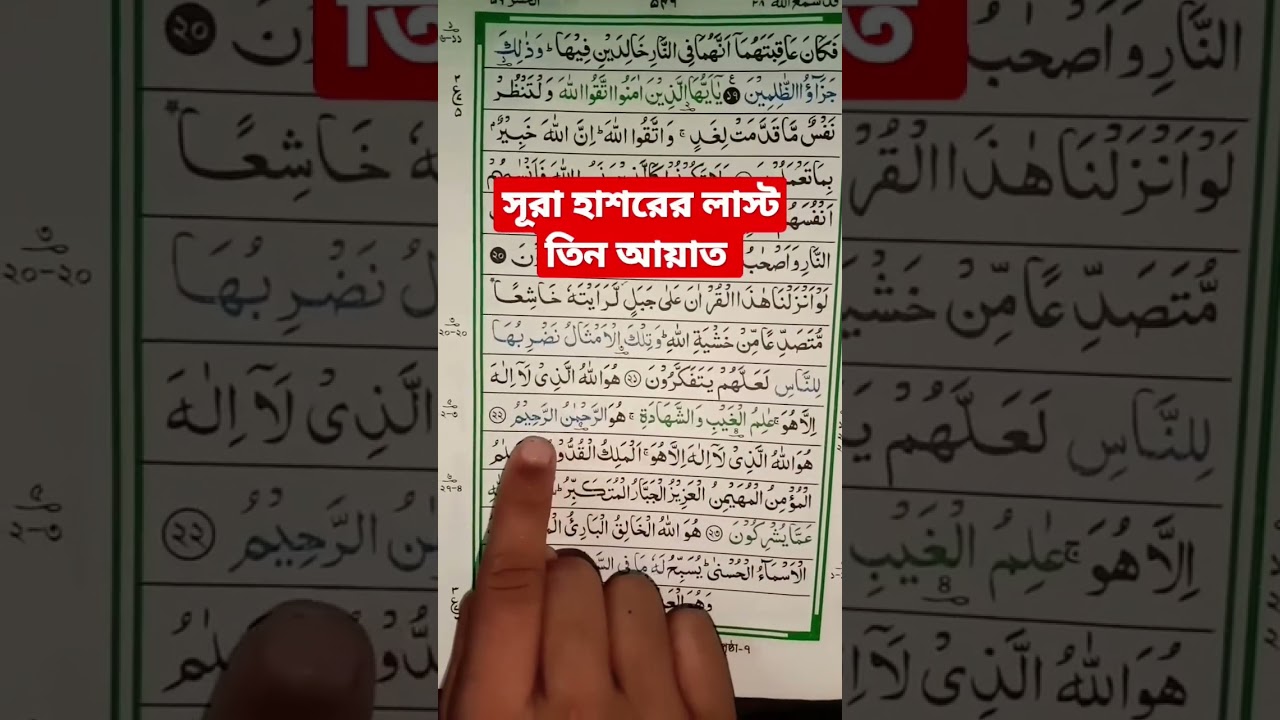 قدسمع الله ٢٨
٥٤٩
الحشر ٥٩
فَكَانَ عَاقِبَتَهُمَآ اَنَّهُمَا فِي النَّارِ خَالِدَيْنِ فِيْهَا ؕ وَذٰلِكَ
جَزٰٓؤُا الظّٰلِمِيْنَ ۝ يٰٓاَيُّهَا الَّذِيْنَ اٰمَنُوا اتَّقُوا اللّٰهَ وَلْتَنْظُرْ
نَفْسٌ مَّا قَدَّمَتْ لِغَدٍ ۚ وَاتَّقُوا اللّٰهَ ؕ اِنَّ اللّٰهَ خَبِيْرٌۢ
بِمَا تَعْمَلُوْنَ
সূরা হাশরের লাস্ট
তিন আয়াত
النَّارِ وَاَصْحٰبُ
لَوْ اَنْزَلْنَا هٰذَا الْقُرْاٰنَ عَلٰى جَبَلٍ لَّرَاَيْتَهٗ خَاشِعًا
مُّتَصَدِّعًا مِّنْ خَشْيَةِ اللّٰهِ ؕ وَتِلْكَ الْاَمْثَالُ نَضْرِبُهَا
لِلنَّاسِ لَعَلَّهُمْ يَتَفَكَّرُوْنَ ۝ هُوَ اللّٰهُ الَّذِيْ لَآ اِلٰهَ
اِلَّا هُوَ ۚ عٰلِمُ الْغَيْبِ وَالشَّهَادَةِ ۚ هُوَ الرَّحْمٰنُ الرَّحِيْمُ ২২
هُوَ اللّٰهُ الَّذِيْ لَآ اِلٰهَ اِلَّا هُوَ ۚ اَلْمَلِكُ
الْمُؤْمِنُ الْمُهَيْمِنُ الْعَزِيْزُ الْجَبَّارُ الْمُتَكَبِّرُ
عَمَّا يُشْرِكُوْنَ ২৩ هُوَ اللّٰهُ الْخَالِقُ الْبَارِئُ
الْاَسْمَآءُ الْحُسْنٰى ؕ يُسَبِّحُ لَهٗ مَا فِي